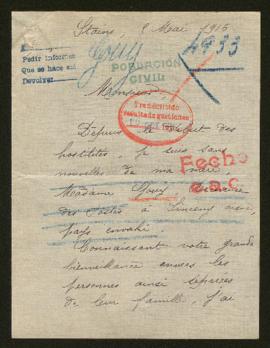 Stains, 8 Mai 1916
Pedir informes
Que se hace así
Devolver
POBLACIÓN
CIVIL
4933
Monsieur,
Transmitido
resultado gestiones
Depuis le début des
hostilités, je suis sans
nouvelles de ma mère
Fecho
Madame
des Postes à
pays envahi.
Connaissant votre grande
bienveillance envers les
personnes ainsi séparées
de leur famille, j'ai